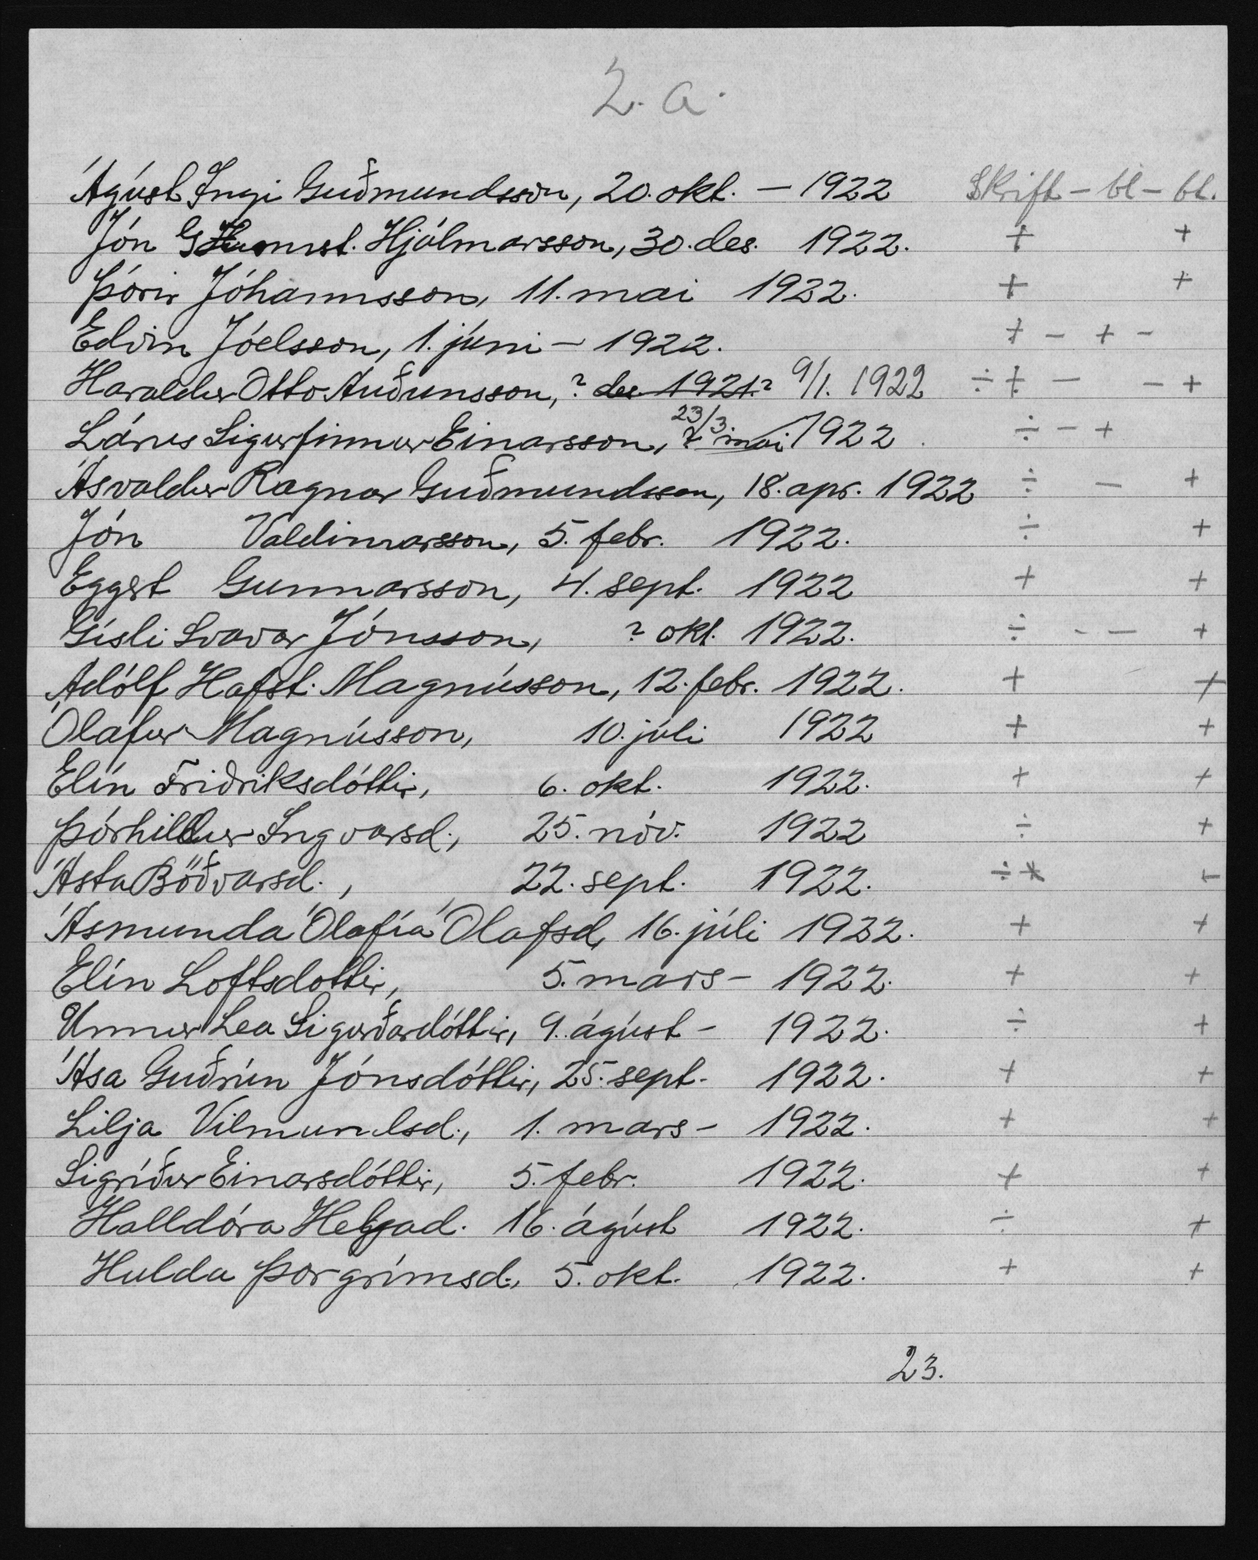 2. a.
Ágúst Ingi Guðmundsson, 20. okt. — 1922 Skrift — bl — bl.
Jón Hjálmarsson, 30. des. 1922. + +
Þórir Jóhannsson, 11. mai 1922. + +
Edvin Jóelsson, 1. júni — 1922. + — + —
Haraldur Otto Auðunsson, ? des. 1921. ? 9/1. 1922 ÷ + — — +
Lárus Sigurfinnur Einarsson, 7 mai 23/3 1922 . ÷ — +
Ásvaldur Ragnar Guðmundsson, 18. apr. 1922 ÷ — +
Jón Valdimarsson, 5. febr. 1922. ÷ +
Eggert Gunnarsson, 4. sept. 1922 + +
Gísli Svavar Jónsson, ? okt. 1922. ÷ - — +
Adólf Hafst. Magnússon, 12. febr. 1922. + +
Ólafur Magnússon, 10. júli 1922 + +
Elín Friðriksdóttir, 6. okt. 1922. + +
Þórhildur Ingvarsd., 25. nóv. 1922 ÷ +
Ásta Böðvarsd. , 22. sept. 1922. ÷ + +
Ásmunda Ólafía Ólafsd, 16. júli 1922. + +
Elín Loftsdottir, 5. mars — 1922. + +
Unnur Lea Sigurðardóttir, 9. ágúst — 1922. ÷ +
Ása Guðrún Jónsdóttir, 25. sept. 1922. + +
Lilja Vilmundsd., 1. mars — 1922. + +
Sigríður Einarsdóttir, 5. febr. 1922. + +
Halldóra Helgad. 16. ágúst 1922. ÷ +
Hulda Þorgrímsd., 5. okt. 1922. + +
23.